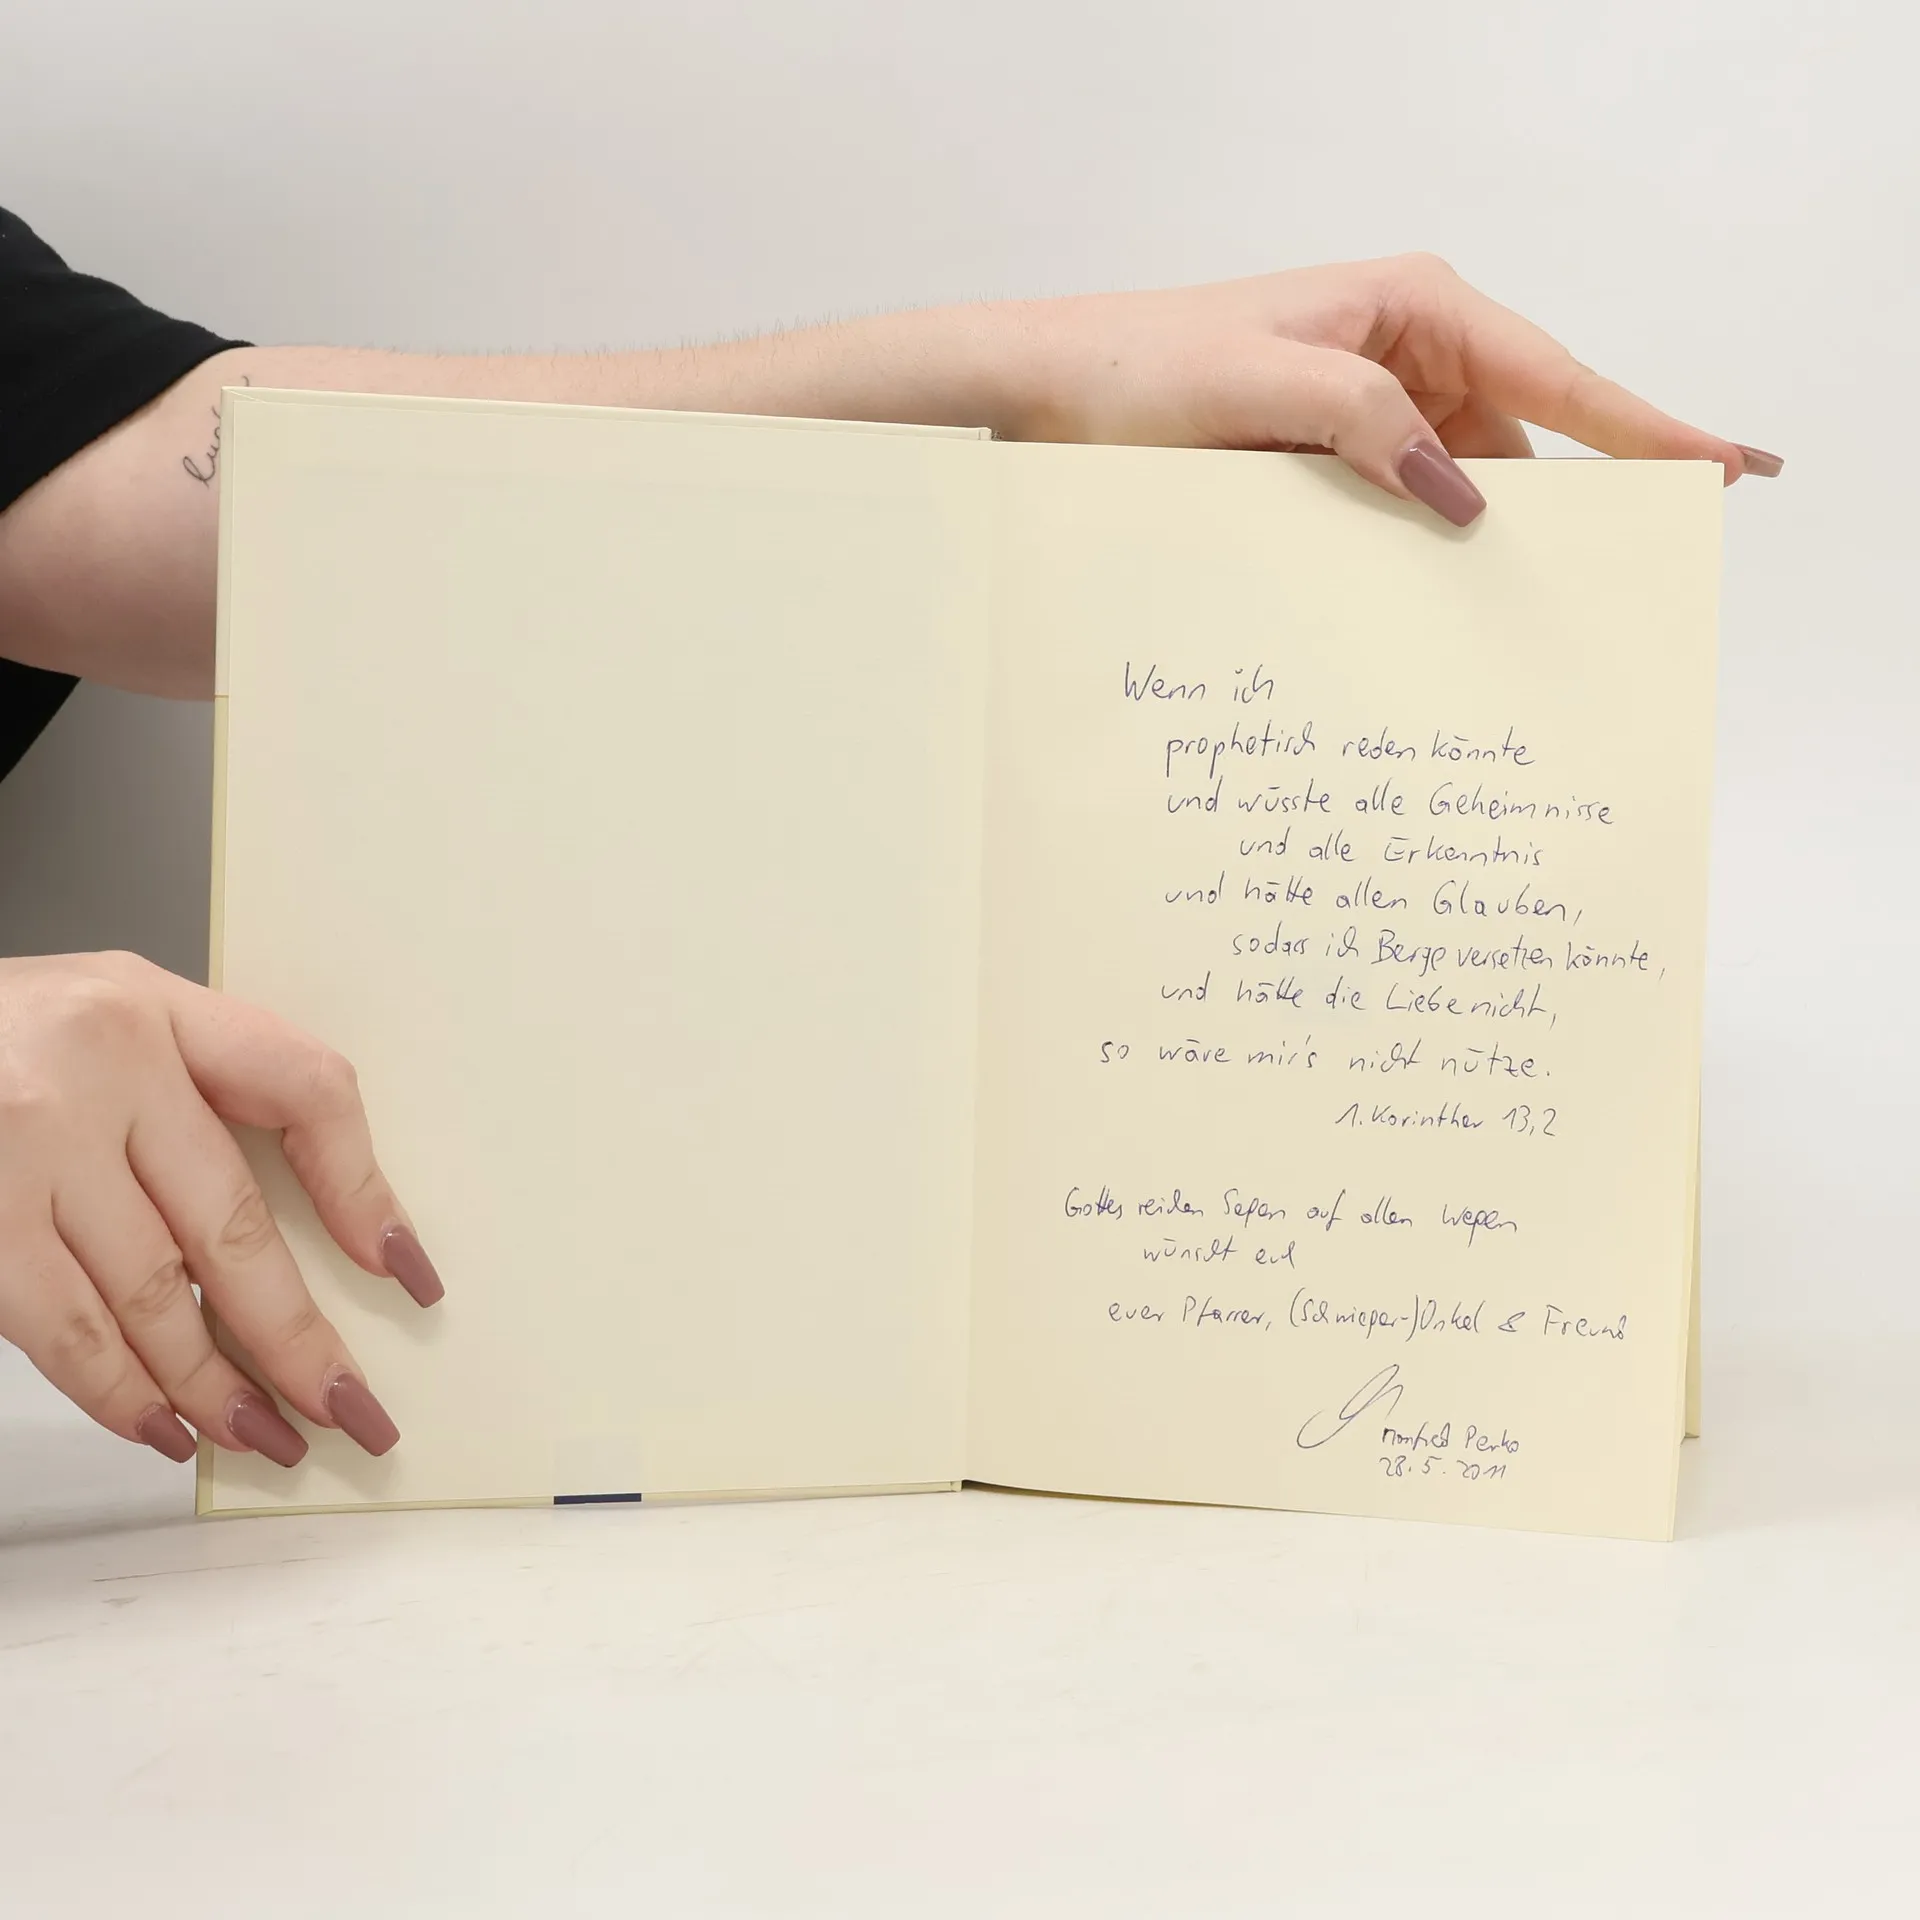 Wenn ich
prophetisch reden könnte
und wüsste alle Geheimnisse
und alle Erkenntnis
und hätte allen Glauben,
sodass ich Berge versetzen könnte,
und hätte die Liebe nicht,
so wäre mir's nicht nütze.
1. Korinther 13,2
Gottes reichen Segen auf allen Wegen
wünscht euch
euer Pfarrer, (Schwieger-)Onkel & Freund
Manfred Perko
28.5.2011